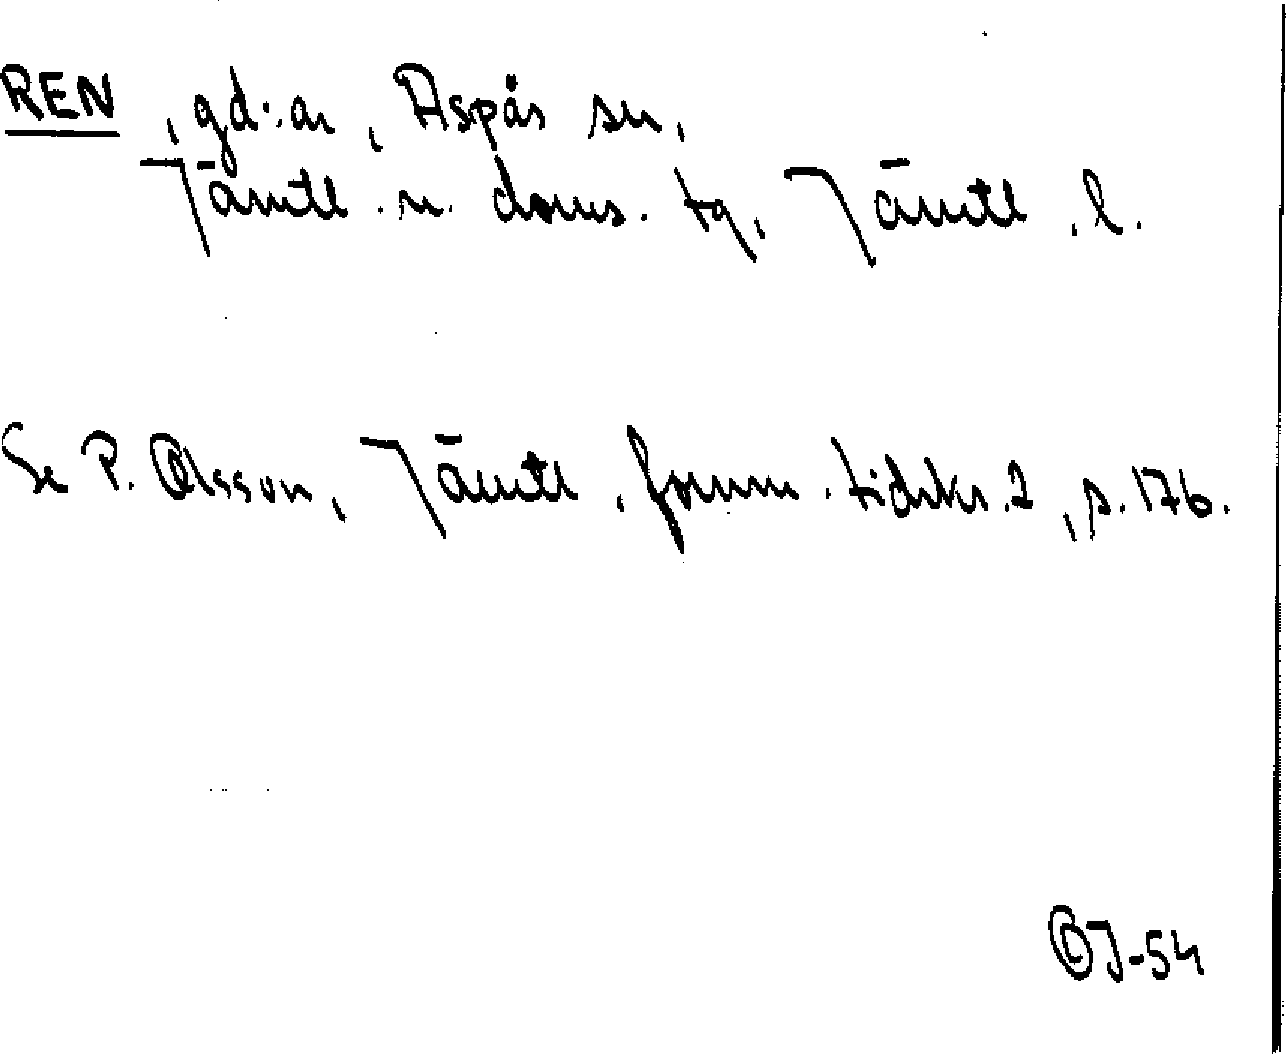 REN, gd:ar, Aspås sn,
Jämtl. n. doms. tg, Jämtl. l.
Se P. Olsson, Jämtl. fornm. tidskr. 2, s. 176.
OJ-54